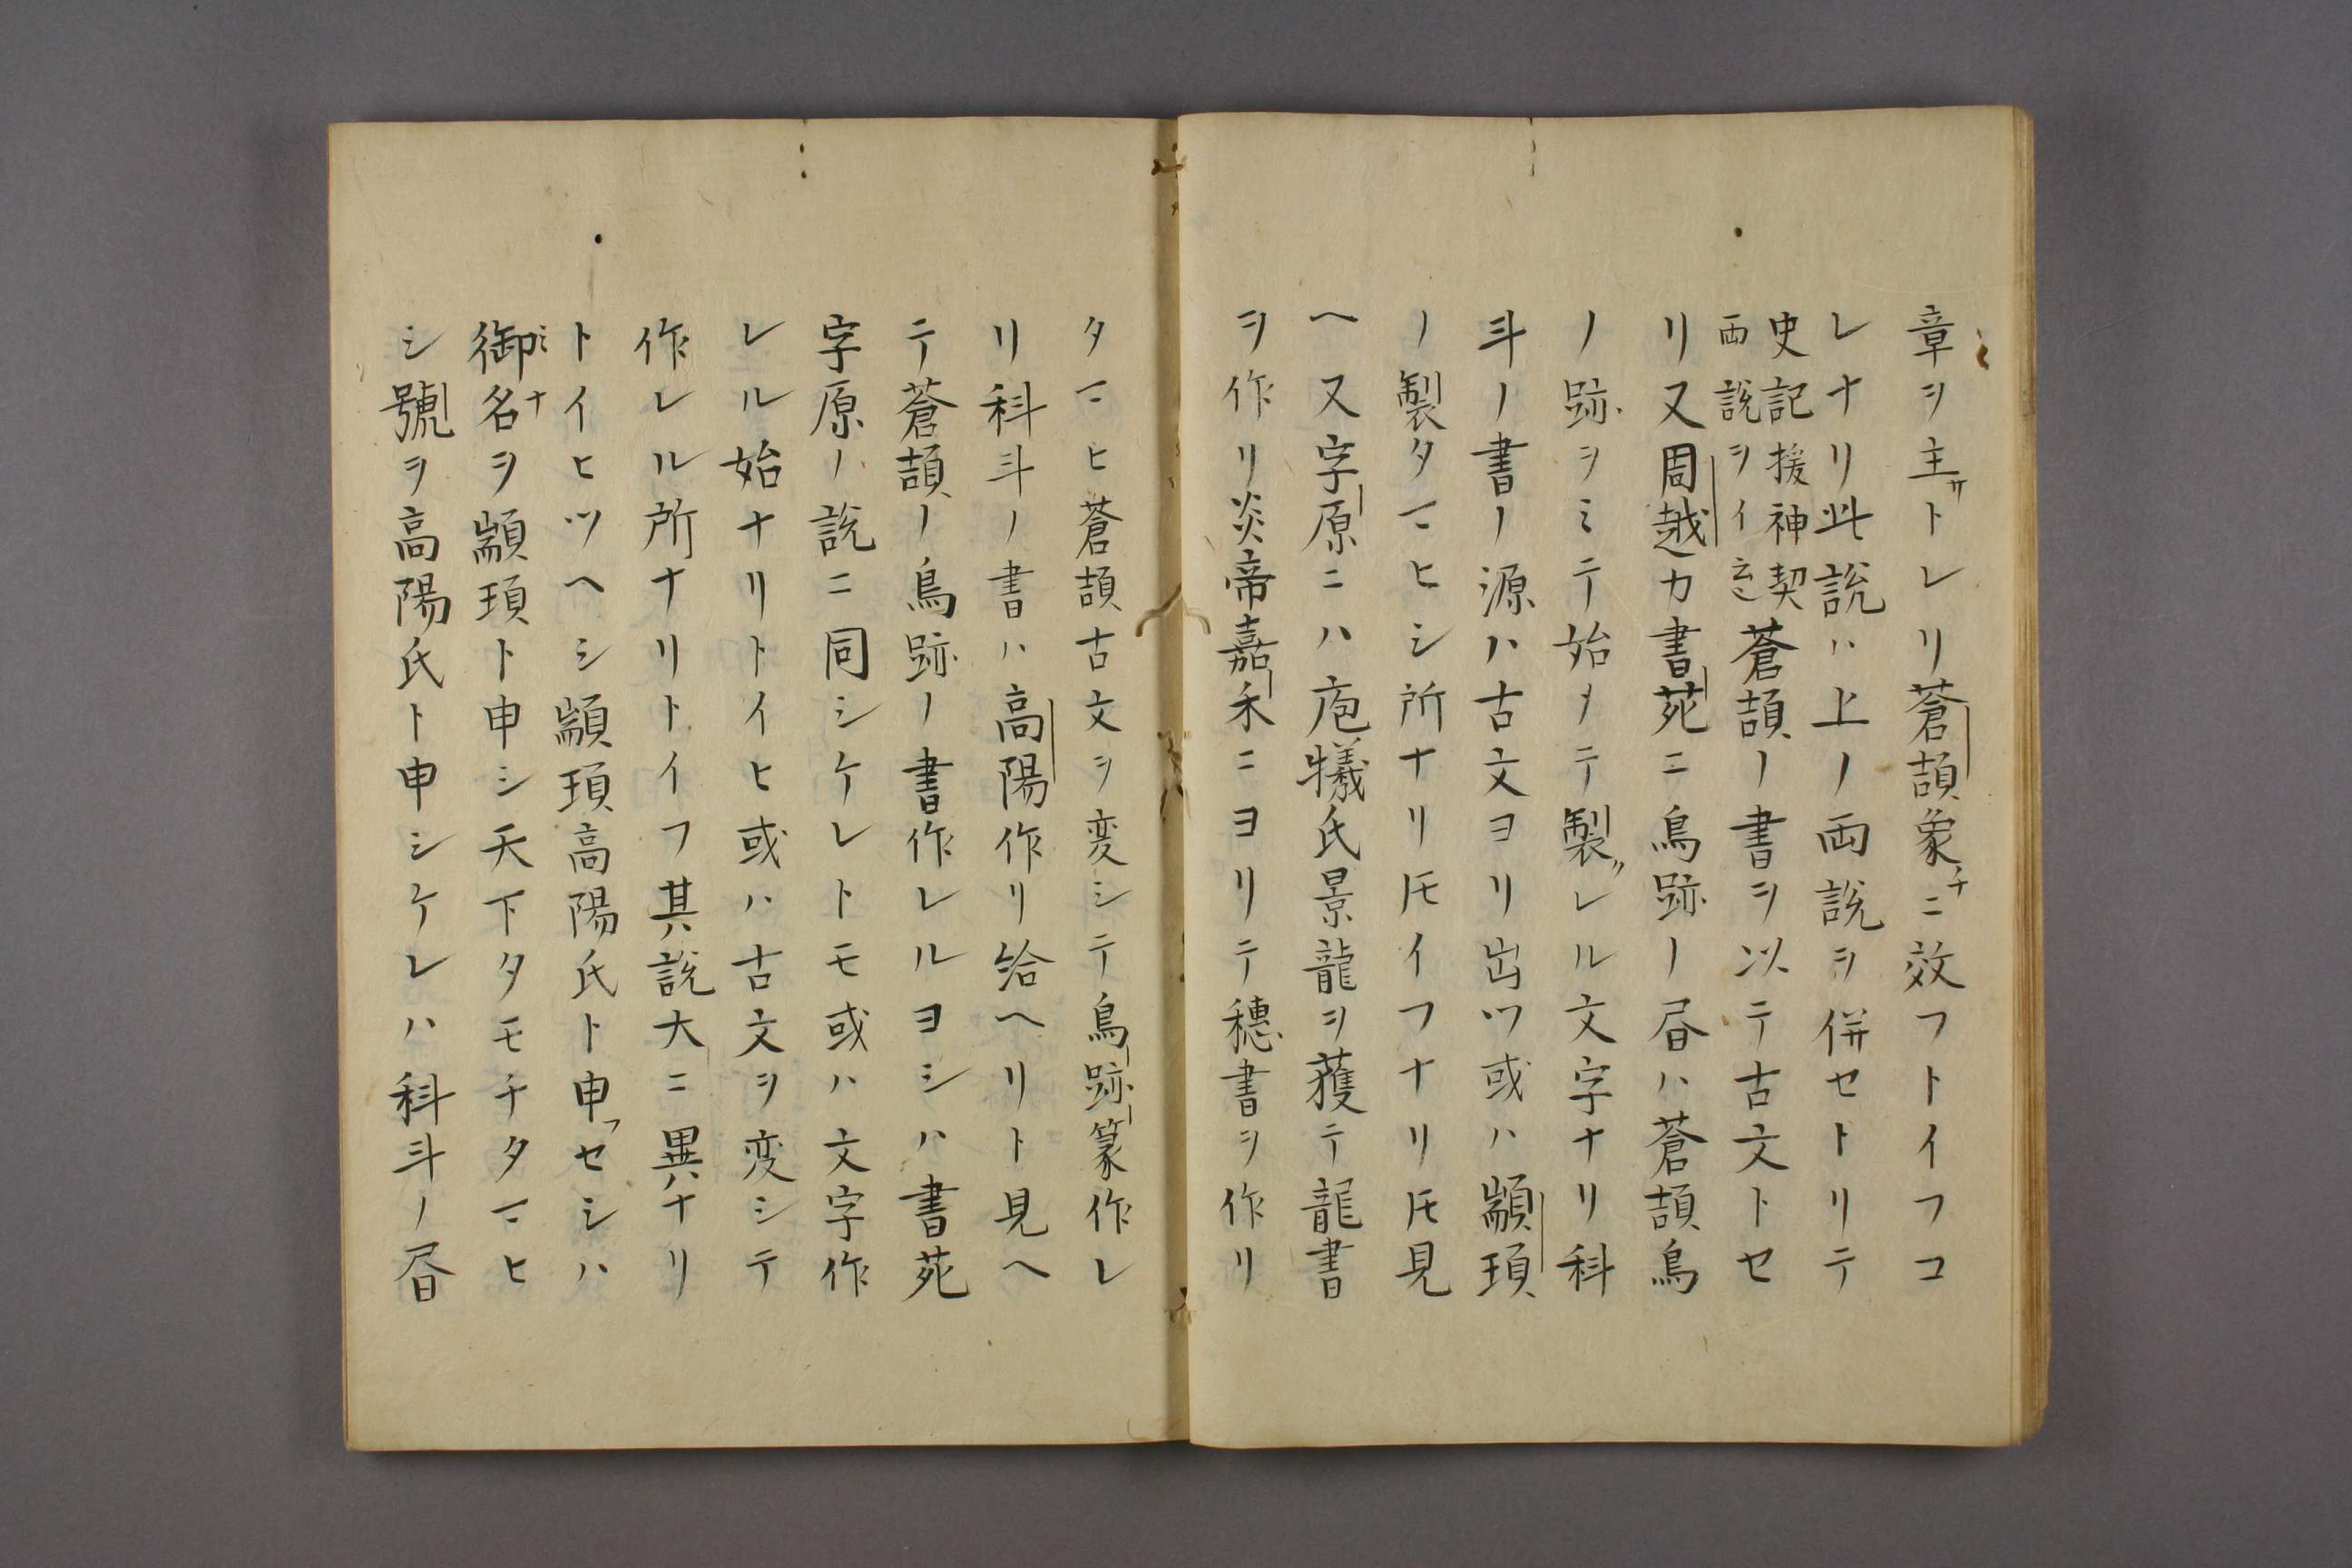 章ヲ主トレリ蒼頡象ニ效フトイフコ
レナリ此說ハ上ノ両說ヲ併セトリテ
史記援神契
両說ヲイフ
蒼頡ノ書ヲ以テ古文トセ
リ又周越カ書苑ニ鳥跡ノ昬ハ蒼頡鳥
ノ跡ヲミテ始メテ製レル文字ナリ科
斗ノ書ノ源ハ古文ヨリ出ツ或ハ顓頊
ノ製タマヒシ所ナリ𪜈イフナリ𪜈見
ヘ又字原ニハ庖犠氏景龍ヲ獲テ龍書
ヲ作リ炎帝嘉禾ニヨリテ穗書ヲ作リ
タマヒ蒼頡古文ヲ変シテ鳥跡篆作レ
リ科斗ノ書ハ高陽作リ給ヘリト見ヘ
テ蒼頡ノ鳥跡ノ書作レルヨシハ書苑
字原ノ說ニ同シケレトモ或ハ文字作
レル始ナリトイヒ或ハ古文ヲ変シテ
作レル所ナリトイフ其說大ニ異ナリ
トイヒツヘシ顓頊高陽氏ト申セシハ
御名ヲ顓頊ト申シ天下タモチタマヒ
シ號ヲ高陽氏ト申シケレハ科斗ノ昬